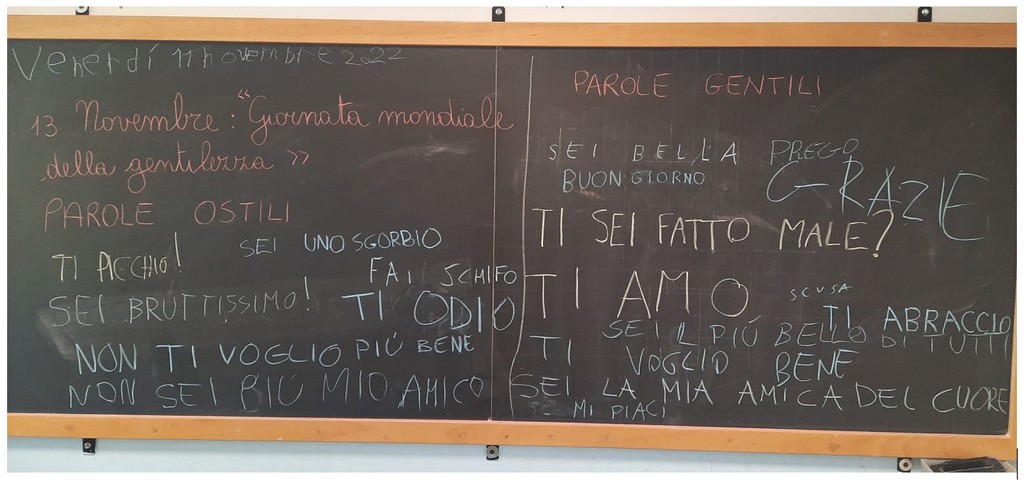 Venerdí 11 novembre 2022
13 Novembre: "Giornata mondiale
della gentilezza »
PAROLE OSTILI
SEI UNO SGORBIO
TI PICCHIO!
FAI SCHIFO
SEI BRUTTISSIMO!
TI ODIO
NON TI VOGLIO PIÚ BENE
NON SEI PIÚ MIO AMICO
PAROLE GENTILI
SEI BELLA
PREGO
BUON GIORNO
GRAZIE
TI SEI FATTO MALE?
TI AMO
SCUSA
TI ABRACCIO
SEI IL PIÚ BELLO DI TUTTI
TI VOGLIO BENE
SEI LA MIA AMICA DEL CUORE
MI PIACI